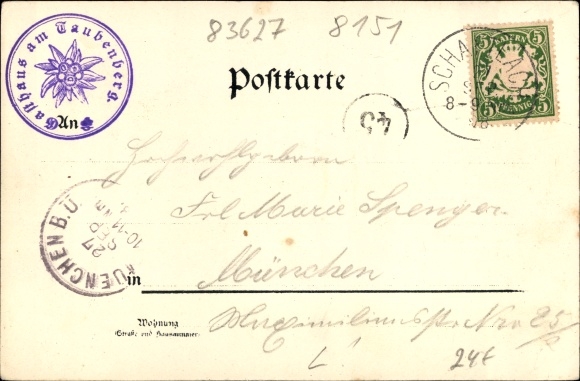 83627 8151
Gasthaus am Taubenberg.
Postkarte
BAYERN
5 5
5 PFENNIG 5
8-9
An
45
Hochwohlgeboren
Frl Marie Spenger
MUENCHEN B.Ü.
27 SEP
in München
Wohnung
(Straße und Hausnummer)
Maximiliansstr Nro 25/
24f